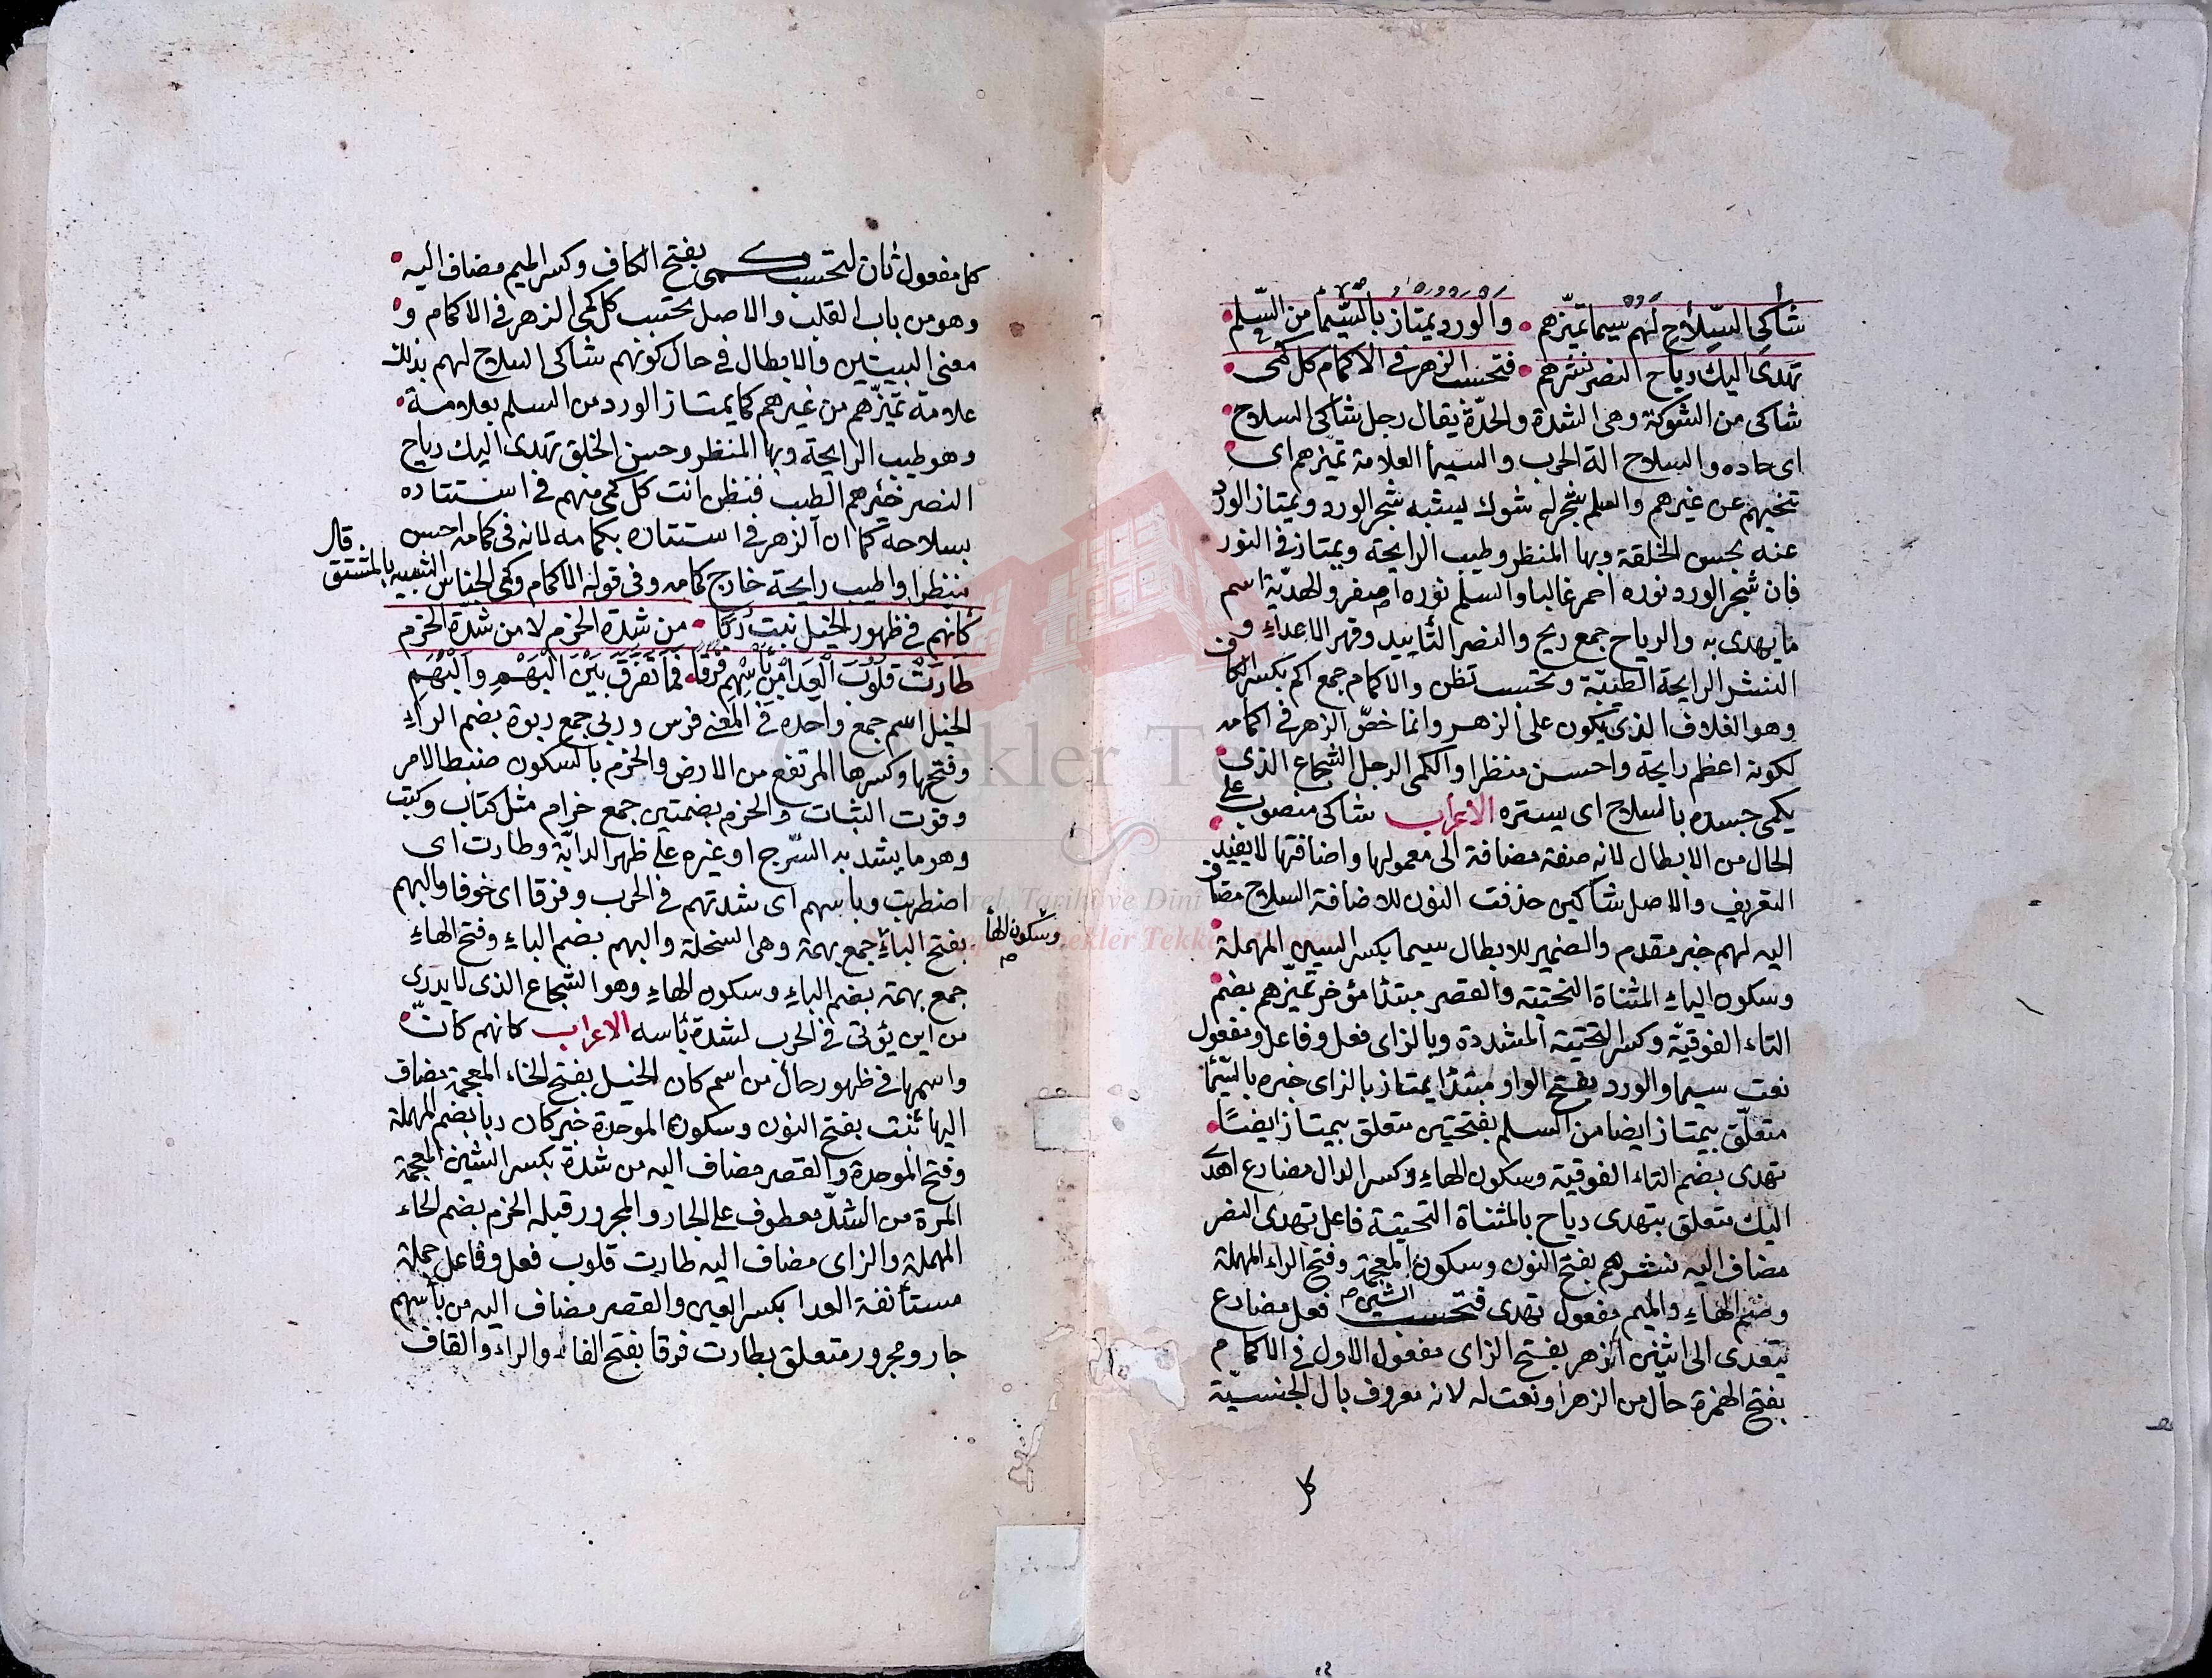 شاكي السِّلاح لهم سيما تميّزهم والورد يمتاز بالسيما من السّلم
تهدى اليك رياح النصر نشرهم فتحسب الزهر في الاكمام كل كمى
شاكى من الشوكة وهى الشدة والحدّة يقال رجل شاكى السلاح
اى حاده والسلاح الة الحرب والسيما العلامة تميزهم اى
تنحيهم عن غيرهم والسلم شجر له شوك يشبه شجر الورد ويمتاز الورد
عنه بحسن الخلقة وبها المنظر وطيب الرايحة ويمتاز في النور
فان شجر الورد نوره احمر غالبا والسلم نوره اصفر والهديّة اسم
ما يهدى به والرياح جمع ريح والنصر التأييد وقهر الاعداءِ و
النشر الرايحة الطيّبة وتحسب تظن والاكمام جمع اكم بكسر الكاف
وهو الغلاف الذى يكون على الزهر وانما خصّ الزهر في اكمامه
لكونه اعظم رايحة واحسن منظرا والكمى الرجل الشجاع الذى
يكمى جسده بالسلاح اى يستره الاعراب شاكى منصوب على
الحال من الابطال لانه صفة مضافة الى معمولها واضافتها لا يفيد
التعريف والاصل شاكين حذفت النون للاضافة السلاح مضاف
اليه لهم خبر مقدم والضمير للابطال سيما بكسر السين المهملة
وسكون الياءِ المثناة التحتية والقصر مبتدا مؤخر تميّزهم بضم
التاء الفوقيّة وكسر التحتية المشددة وبالزاى فعل وفاعل ومفعول
نعت سيما والورد بفتح الواو مبتدا يمتاز بالزاى خبره بالسيما
متعلّق بيمتاز ايضا من السلم بفتحتين متعلق بيمتاز ايضًا
تهدى بضم التاء الفوقية وسكون الهاءِ وكسر الدال مضارع اهدى
اليك متعلق بتهدى رياح بالمثناة التحتية فاعل تهدى النصر
مضاف اليه نشرهم بفتح النون وسكون الشين المعجمة وفتح الراء المهملة
وضم الهاءِ والميم مفعول تهدى فتحسب فعل مضارع
يتعدى الى اثنين الزهر بفتح الزاى مفعول الاول في الاكمام
بفتح الهمزة حال من الزهر او نعت له لانه معروف بال الجنسيّة
كل
كل مفعول ثان لتحسب كمى بفتح الكاف وكسر الميم مضاف اليه
وهو من باب القلب والاصل يحتسب كل كمى الزهر في الاكمام و
معنى البيتين والابطال في حال كونهم شاكى السلاح لهم بذلك
علامة تميّزهم من غيرهم كما يمتاز الورد من السلم بعلامة
وهو طيب الرايحة وبها المنظر وحسن الخلق تهدى اليك رياح
النصر خبرهم الطيب فتظن انت كل كمى منهم في استتاره
بسلاحه كما ان الزهر في استتاره بكمامه لانه في كمامه احسن
منظرا واطيب رايحة خارج كمامه وفى قوله الاكمام وكمى الجناس الشبيه بالمشتق قال
كانهم في ظهور الخيل نبت رُبًا من شدة الحزم لا من شدّة الحزم
طارت قلوب العدا من بأسهم فرقا فما تفرّق بين البَهْمِ والبُهَمِ
الخيل اسم جمع واحده في المعنى فرس وربى جمع ربوة بضم الراءِ
وفتحها وكسرها المرتفع من الارض والحزم بالسكون ضبط الامر
وقوت الثبات والحزم بضمتين جمع حزام مثل كتاب وكتب
وهو ما يشد به السّرج او غيره على ظهر الدابّة وطارت اى
اضطربت وباسهم اى شدتهم في الحرب وفرقا اى خوفا والبهم
بفتح الباءِ وسكون الهاء جمع بهمة وهى السخلة والبهم بضم الباءِ وفتح الهاءِ
جمع بهمة بضم الباءِ وسكون الهاءِ وهو الشجاع الذى لا يدرى
من اين يؤتى في الحرب لشدة بأسه الاعراب كانهم كانّ
واسمها في ظهور حال من اسم كان الخيل بفتح الخاء المعجمة مضاف
اليها نبت بفتح النون وسكون الموحدة خبر كان ربا بضم المهملة
وفتح الموحدة والقصر مضاف اليه من شدة بكسر الشين المعجمة
المرة من الشدّ معطوف على الجار والمجرور قبله الحزم بضم الحاء
المهملة والزاى مضاف اليه طارت قلوب فعل وفاعل جملة
مستأنفة العدا بكسر العين والقصر مضاف اليه من بأسهم
جار ومجرور متعلق بطارت فرقا بفتح الفاء والراء والقاف